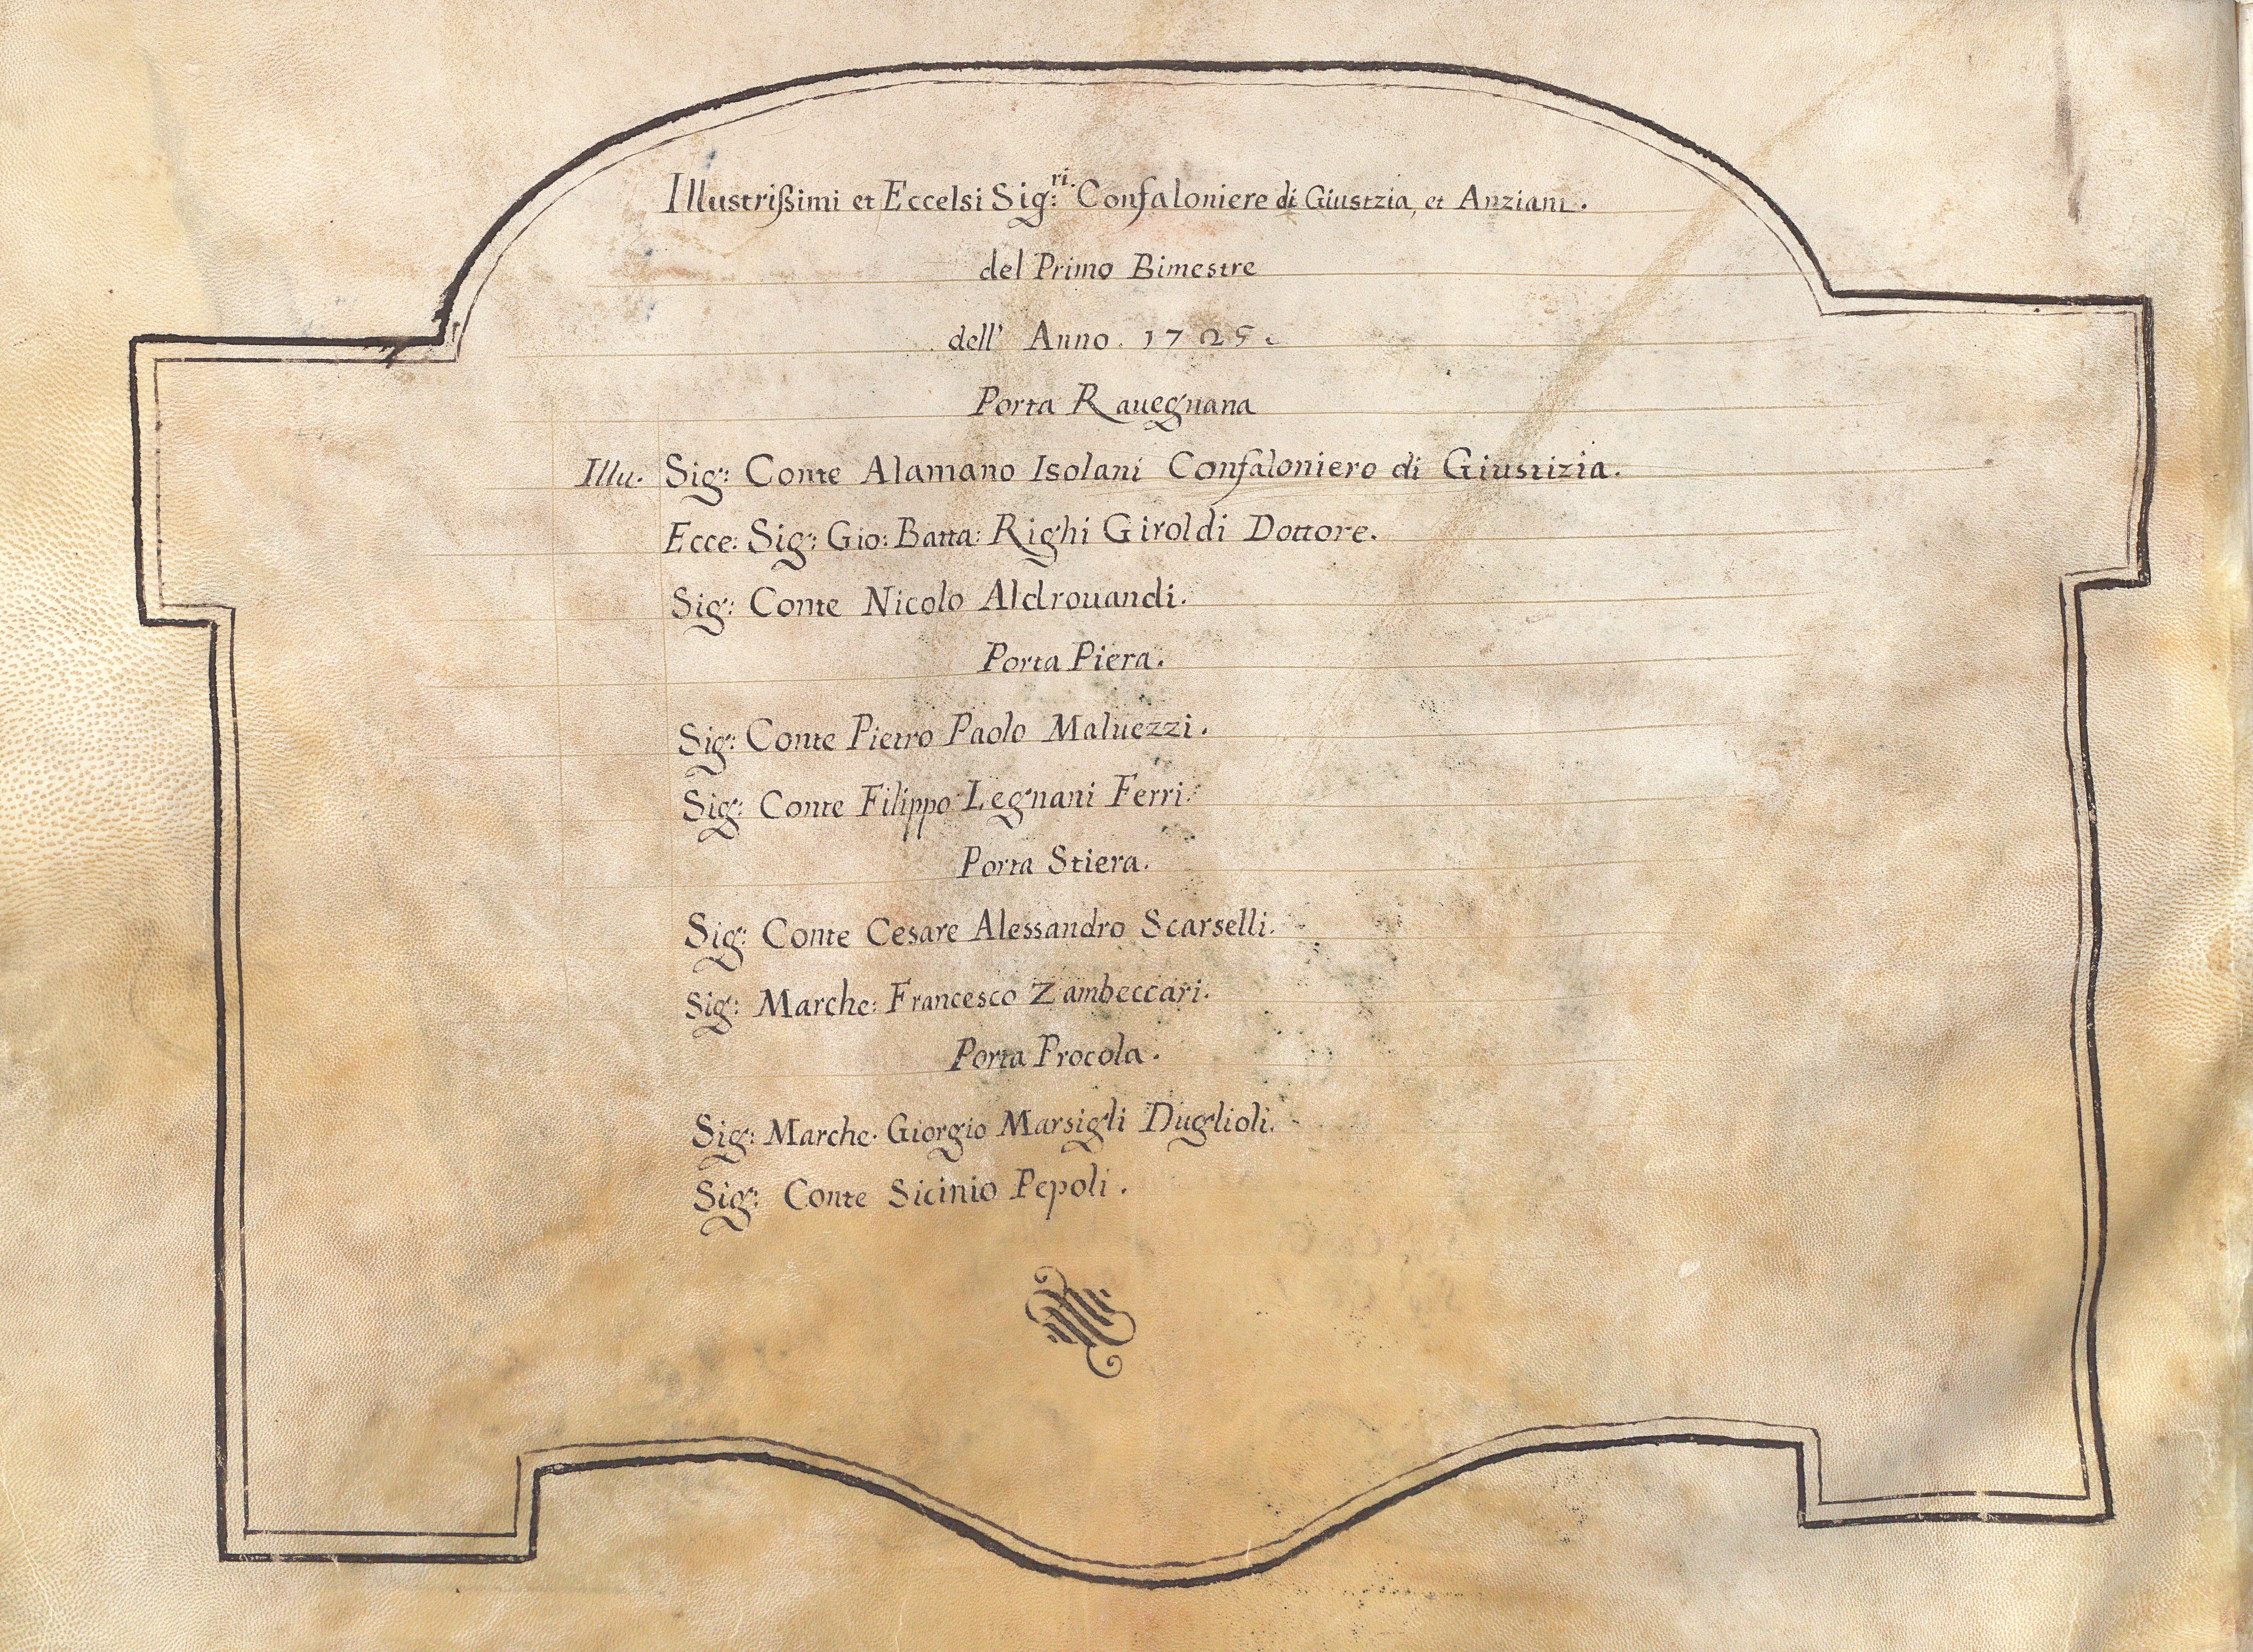 Illustrißimi et Eccelsi Sig:ri. Confaloniere di Giustzia, et Anziani.
del Primo Bimestre
dell' Anno. 1725.
Porta Rauegnana
Illu. Sig: Conte Alamano Isolani Confaloniero di Giustizia.
Ecce: Sig: Gio: Batta: Righi Giroldi Dottore.
Sig: Conte Nicolo Aldrouandi.
Porta Piera.
Sig: Conte Pietro Paolo Maluezzi.
Sig: Conte Filippo Legnani Ferri.
Porta Stiera.
Sig: Conte Cesare Alessandro Scarselli.
Sig: Marche: Francesco Zambeccari.
Porta Procola.
Sig: Marche. Giorgio Marsigli Duglioli.
Sig: Conte Sicinio Pepoli.